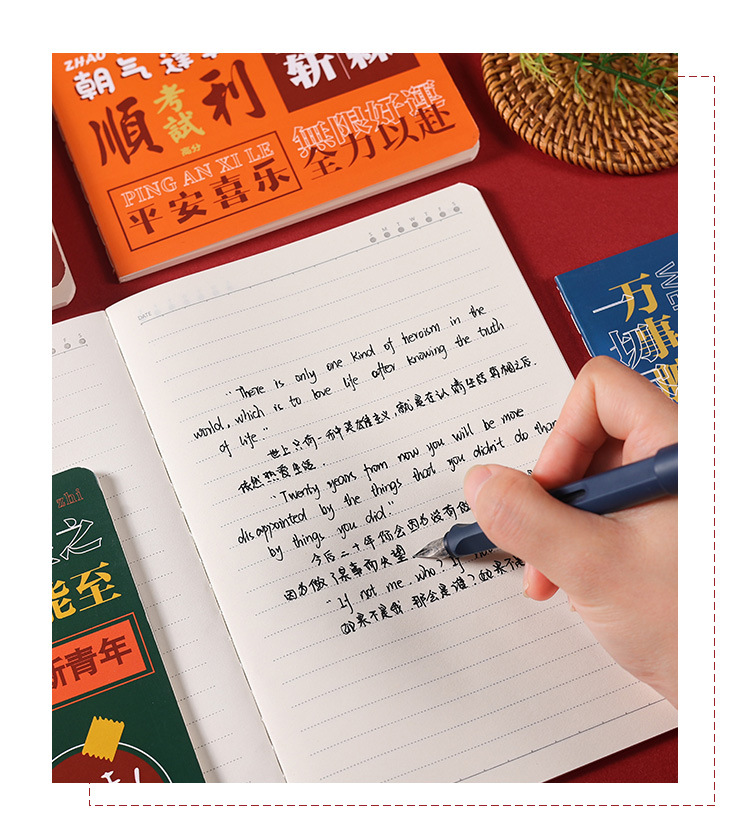 ZHAO
朝气
順
考試
高分
利
斩
無限好運
全力以赴
PING AN XI LE
平安喜乐
S M T W T F S
DATE
"There is only one kind of heroism in the
world, which is to love life after knowing the truth
of life."
世上只有一种英雄主义,就是在认清生活真相之后,
依然热爱生活.
"Twenty years from now you will be more
disappointed by the things that you didn't do than
by things you did."
今后二十年你会因为没有做
因为做了某事而失望
"If not me, who? If not
如果不是我,那会是谁?如果不是
一切
万事
zhi
之
能至
新青年